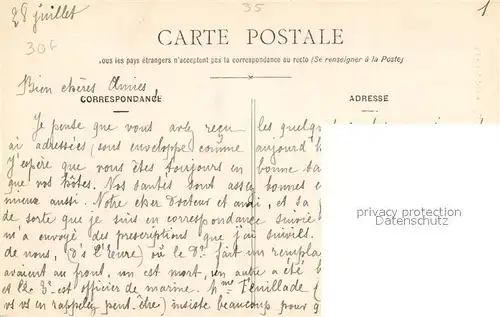 28 juillet
35
1
30f
CARTE POSTALE
ous les pays étrangers n'acceptent pas la correspondance au recto (Se renseigner à la Poste)
Bien chères Amies,
CORRESPONDANCE
ADRESSE
Je pense que vous avez reçu les quelq
ai adressées (sous enveloppe comme aujourd'h
J'espère que vous êtes toujours en bonne sa
que vos hôtes. Nos santés sont assez bonnes e
mieux aussi. Notre cher Docteur et ami, et sa f
de sorte que je suis en correspondance suivie
m'a envoyé des prescriptions que j'ai suivies.
de nous, (D's l'Eure) où le Dr fait un rempla
avaient au front, un est mort, un autre a été b
et le 3e est officier de marine. Mme Feuillade (
vs vs en rappelez peut-être) insiste beaucoup pour q
privacy protection
Datenschutz